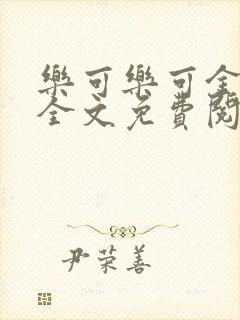 樂可樂可全
全文免費閱
尹荣善